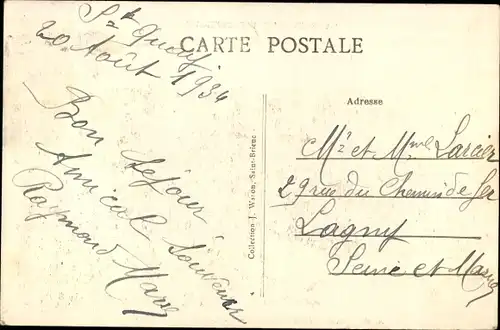 CARTE POSTALE
St Quay
20 Août 1934
Bon Séjour
Amical Souvenir
Raymond
Collection J. Waron, Saint-Brieuc
Adresse
Mr et Mme Larcier
29 rue du Chemin de fer
Lagny
Seine et Marne